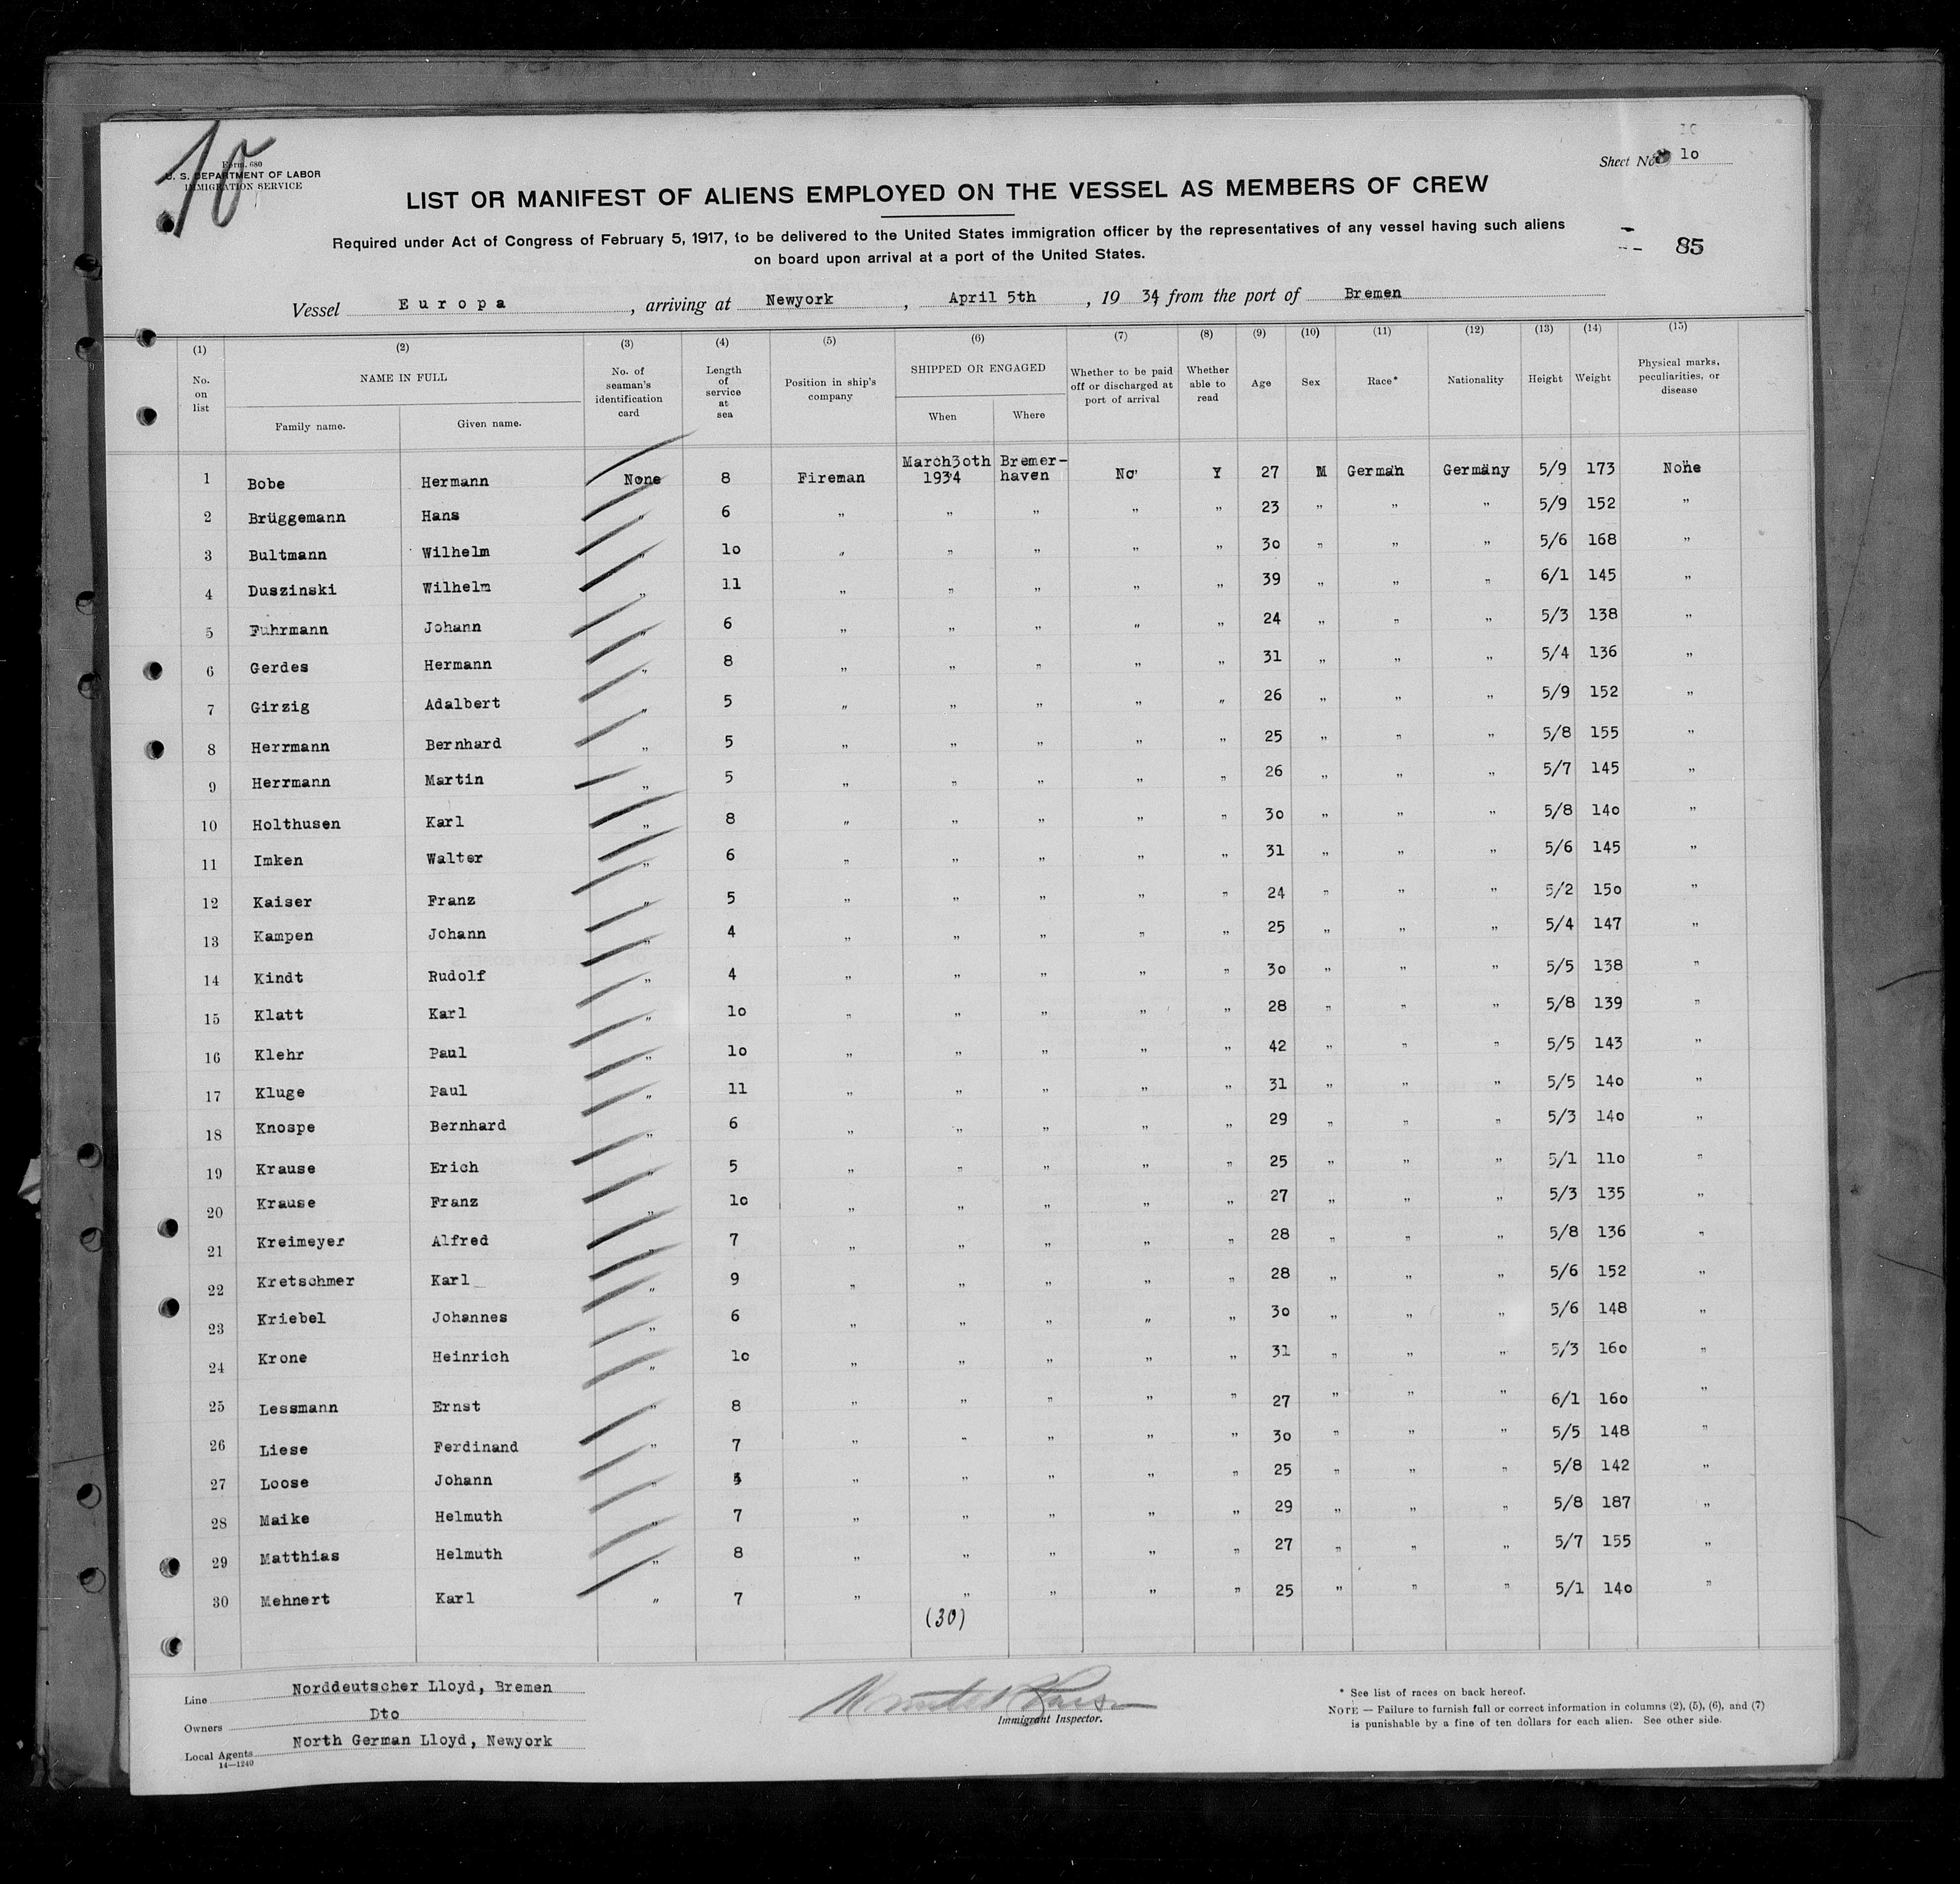 10
Form 680
U. S. DEPARTMENT OF LABOR
IMMIGRATION SERVICE
10
Sheet No. 10
LIST OR MANIFEST OF ALIENS EMPLOYED ON THE VESSEL AS MEMBERS OF CREW
Required under Act of Congress of February 5, 1917, to be delivered to the United States immigration officer by the representatives of any vessel having such aliens
on board upon arrival at a port of the United States.
85
Vessel Europa, arriving at Newyork, April 5th, 1934 from the port of Bremen
(1) (2) (3) (4) (5) (6) (7) (8) (9) (10) (11) (12) (13) (14) (15)
No. on list NAME IN FULL Family name. Given name. No. of seaman's identification card Length of service at sea Position in ship's company SHIPPED OR ENGAGED When Where Whether to be paid off or discharged at port of arrival Whether able to read Age Sex Race* Nationality Height Weight Physical marks, peculiarities, or disease
1 Bobe Hermann None 8 Fireman March3oth 1934 Bremer-haven No Y 27 M German Germany 5/9 173 None
2 Brüggemann Hans " 6 " " " " " 23 " " " 5/9 152 "
3 Bultmann Wilhelm " 1o " " " " " 3o " " " 5/6 168 "
4 Duszinski Wilhelm " 11 " " " " " 39 " " " 6/1 145 "
5 Fuhrmann Johann " 6 " " " " " 24 " " " 5/3 138 "
6 Gerdes Hermann " 8 " " " " " 31 " " " 5/4 136 "
7 Girzig Adalbert " 5 " " " " " 26 " " " 5/9 152 "
8 Herrmann Bernhard " 5 " " " " " 25 " " " 5/8 155 "
9 Herrmann Martin " 5 " " " " " 26 " " " 5/7 145 "
10 Holthusen Karl " 8 " " " " " 3o " " " 5/8 14o "
11 Imken Walter " 6 " " " " " 31 " " " 5/6 145 "
12 Kaiser Franz " 5 " " " " " 24 " " " 5/2 15o "
13 Kampen Johann " 4 " " " " " 25 " " " 5/4 147 "
14 Kindt Rudolf " 4 " " " " " 3o " " " 5/5 138 "
15 Klatt Karl " 1o " " " " " 28 " " " 5/8 139 "
16 Klehr Paul " 1o " " " " " 42 " " " 5/5 143 "
17 Kluge Paul " 11 " " " " " 31 " " " 5/5 14o "
18 Knospe Bernhard " 6 " " " " " 29 " " " 5/3 14o "
19 Krause Erich " 5 " " " " " 25 " " " 5/1 11o "
20 Krause Franz " 1o " " " " " 27 " " " 5/3 135 "
21 Kreimeyer Alfred " 7 " " " " " 28 " " " 5/8 136 "
22 Kretschmer Karl " 9 " " " " " 28 " " " 5/6 152 "
23 Kriebel Johannes " 6 " " " " " 3o " " " 5/6 148 "
24 Krone Heinrich " 1o " " " " " 31 " " " 5/3 16o "
25 Lessmann Ernst " 8 " " " " " 27 " " " 6/1 16o "
26 Liese Ferdinand " 7 " " " " " 3o " " " 5/5 148 "
27 Loose Johann " " " " " " 25 " " " 5/8 142 "
28 Maike Helmuth " 7 " " " " " 29 " " " 5/8 187 "
29 Matthias Helmuth " 8 " " " " " 27 " " " 5/7 155 "
30 Mehnert Karl " 7 " " " " " 25 " " " 5/1 14o "
(30)
Line Norddeutscher Lloyd, Bremen
Owners Dto
Local Agents North German Lloyd, Newyork
14—1240
Immigrant Inspector.
* See list of races on back hereof.
NOTE — Failure to furnish full or correct information in columns (2), (5), (6), and (7)
is punishable by a fine of ten dollars for each alien. See other side.